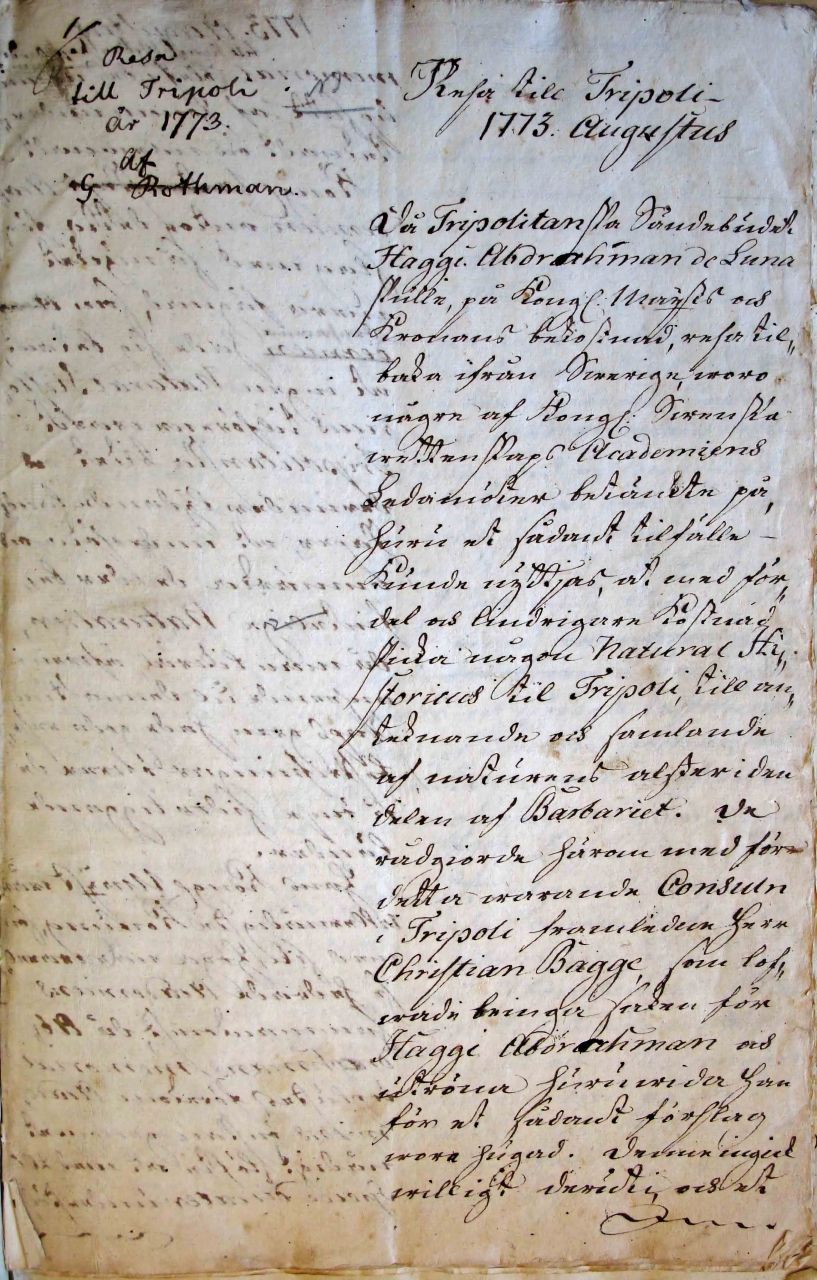 1
Resa
till Tripoli
år 1773.
Af
G. Rothman.
Resa till Tripoli
1773. Augustus
Då Tripolitanska Sändebudet
Haggi Abdrachman de Luna
skulle, på Kongl. Maÿsts och
Kronans bekostnad, resa til„
baka ifrån Swerige, woro
någre af Kongl. Swenska
wettenskaps Academiens
Ledamöter betänckte på,
huru et sådant tilfälle –
kunde nyttjas, at med för„
del och lindrigare kostnad
skicka någon Natural Hi„
storicus til Tripoli, till an„
teknande och samlande
af naturens alster i den
delen af Barbariet. De
rådgiorde härom med för„
detta warande Consuln
i Tripoli framledne Herr
Christian Bagge, som lof„
wade bringa saken för
Haggi Abdrachman och
utröna huruwida han
för et sådant förslag
wore hugad. Denne ingick
willigt deruti, och et